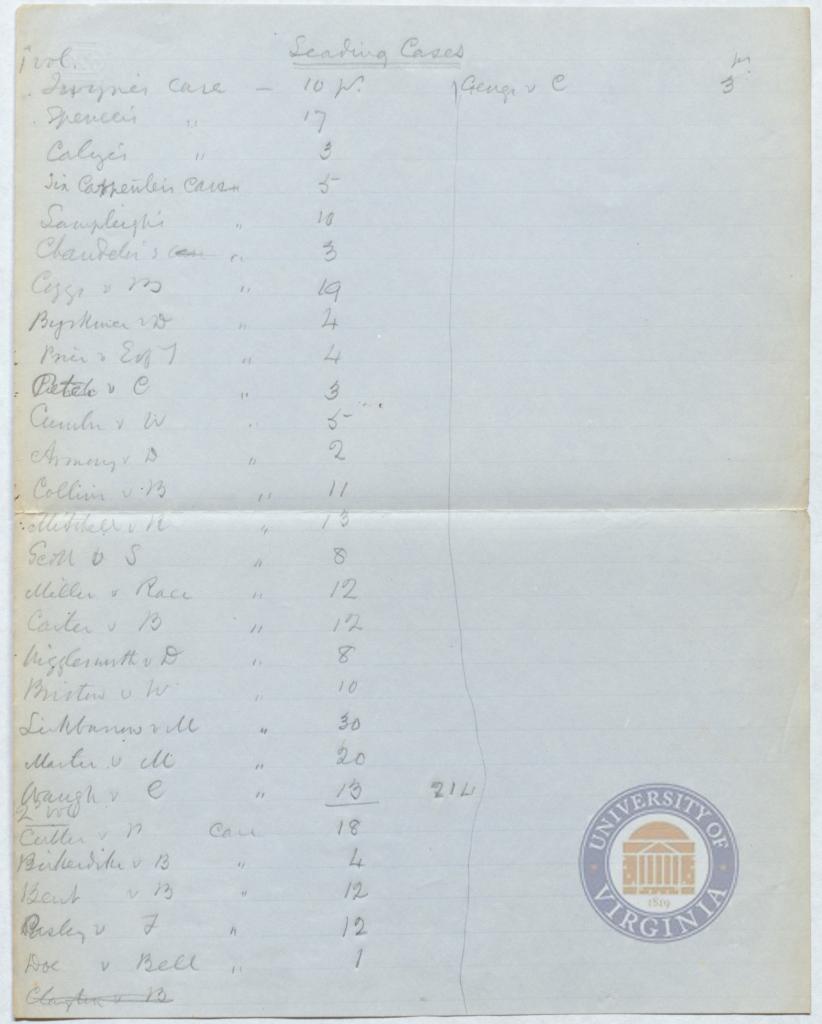 Leading Cases
1 vol.
Case — 10 p.
Spencer's " 17
Calye's " 3
Six Carpenters Case " 5
Lampleigh's " 10
Chandelor's case " 3
Coggs v B " 19
v D " 4
Price v E of T " 4
v C " 3
Cumber v W " 5
Armory v D " 2
Collins v B " 11
Mitchell v R " 13
Scott v S " 8
Miller v Race " 12
Carter v B " 12
Wigglesworth v D " 8
Bristow v W " 10
Lickbarrow v M " 30
Master v M " 20
Waugh v C " 13 214
2 vol
Cutter v P Case 18
Birkerdike v B " 4
Bent v B " 12
Pasley v F " 12
Doe v Bell " 1
Clayton v B
p.
George v C 3
UNIVERSITY OF VIRGINIA
1819